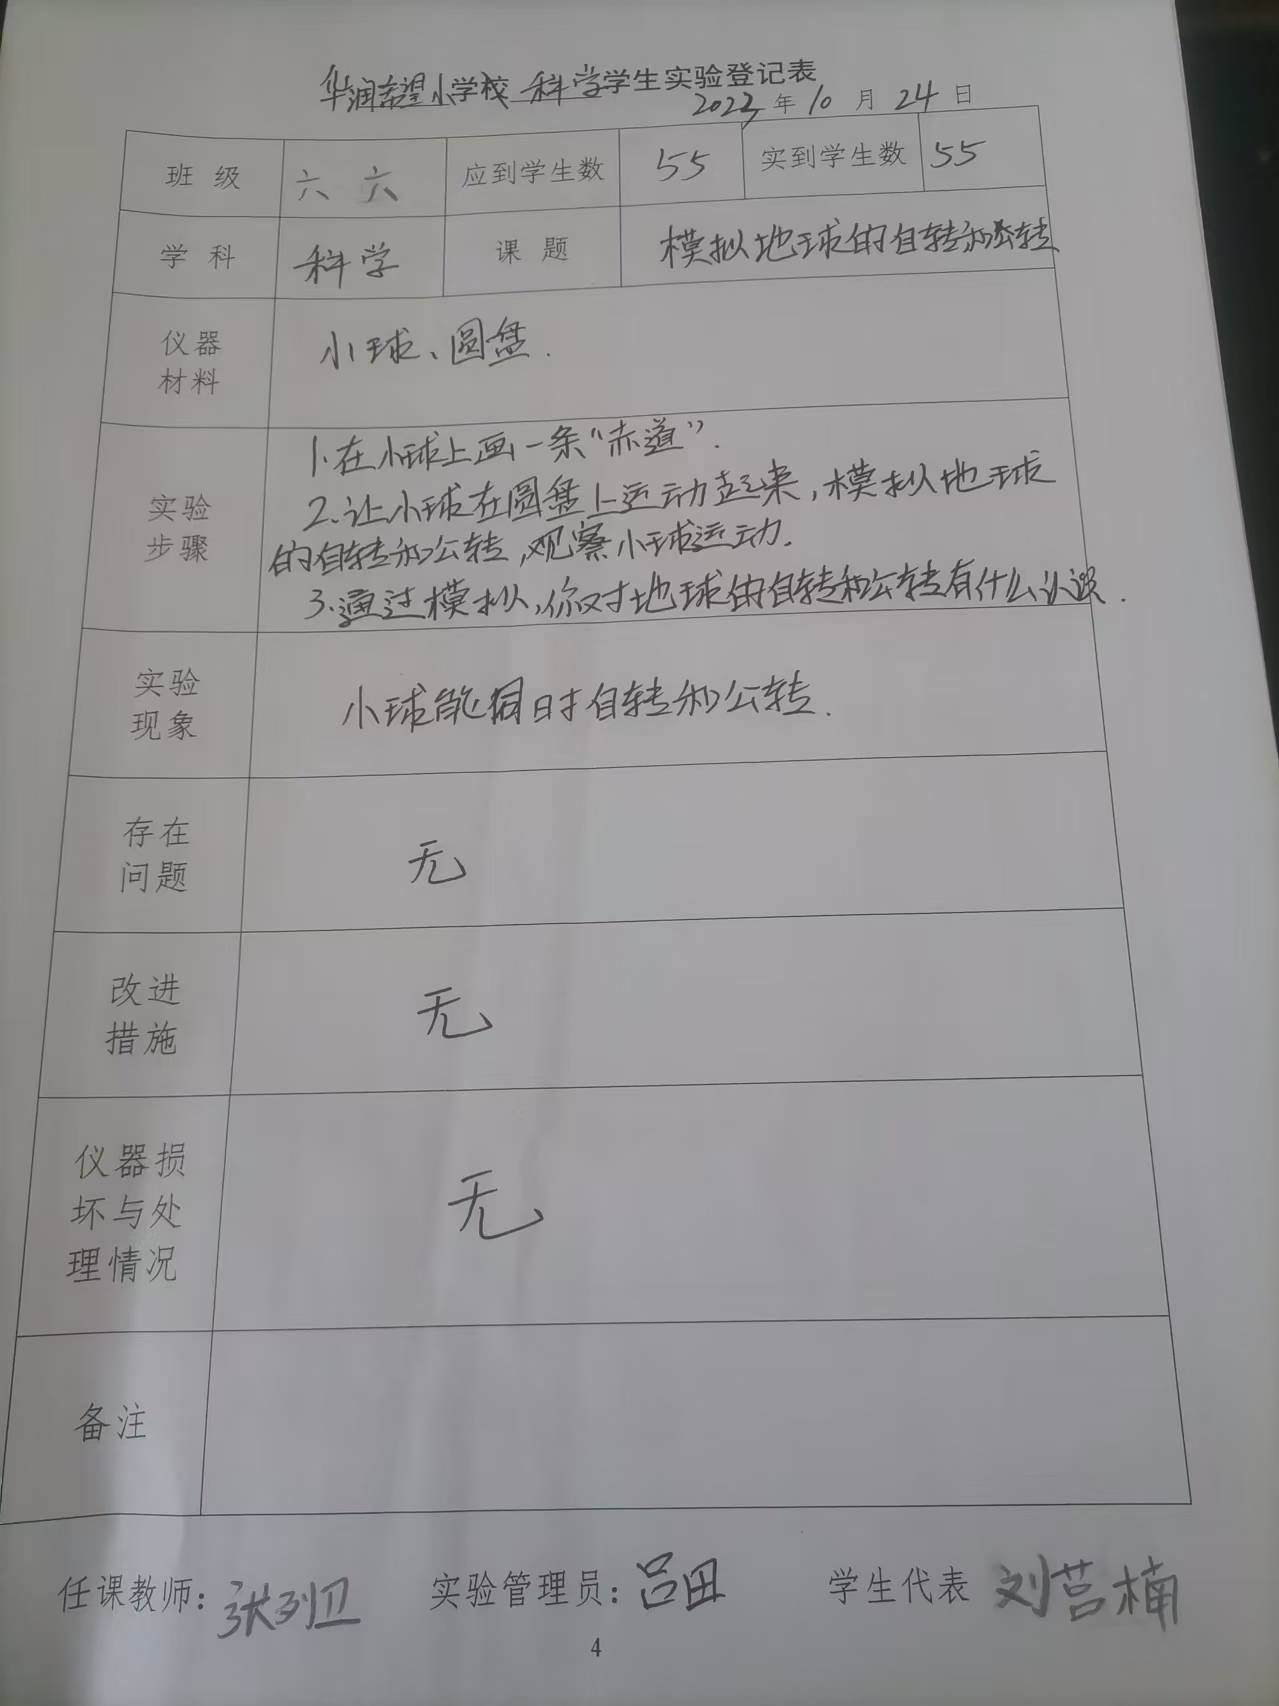 华润希望小学校 科学学生实验登记表
2023年10月24日
班级 六六 应到学生数 55 实到学生数 55
学科 科学 课题 模拟地球的自转和公转
仪器
材料
小球、圆盘.
实验
步骤
1.在小球上画一条“赤道”.
2.让小球在圆盘上运动起来,模拟地球
的自转和公转,观察小球运动.
3.通过模拟,你对地球的自转和公转有什么认识.
实验
现象
小球能同时自转和公转.
存在
问题
无
改进
措施
无
仪器损
坏与处
理情况
无
备注
任课教师: 张列卫 实验管理员: 吕田 学生代表 刘莒楠
4